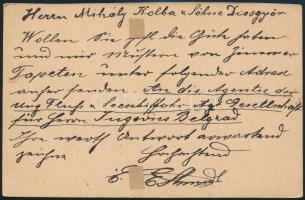 Herrn Mihály Kolba & Söhne Diosgyör
Wollen Sie gefl. die Güte haben
und mir Mustern von Zimmer
Tapeten unter folgender Adresse
anher senden. An die Agentie der
ung Fluss & Seeschiffahrt Act Gesellschaft
für Herrn Belgrad
Ihre werth Antwort erwartend
zeichne Hochachtend